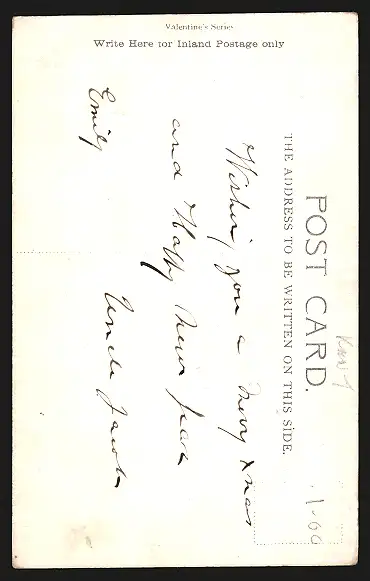 Valentine's Series
Write Here for Inland Postage only
POST CARD.
THE ADDRESS TO BE WRITTEN ON THIS SIDE.
Wishing you a Merry Xmas
and Happy New Year
Emily
Uncle Jacob
1.60